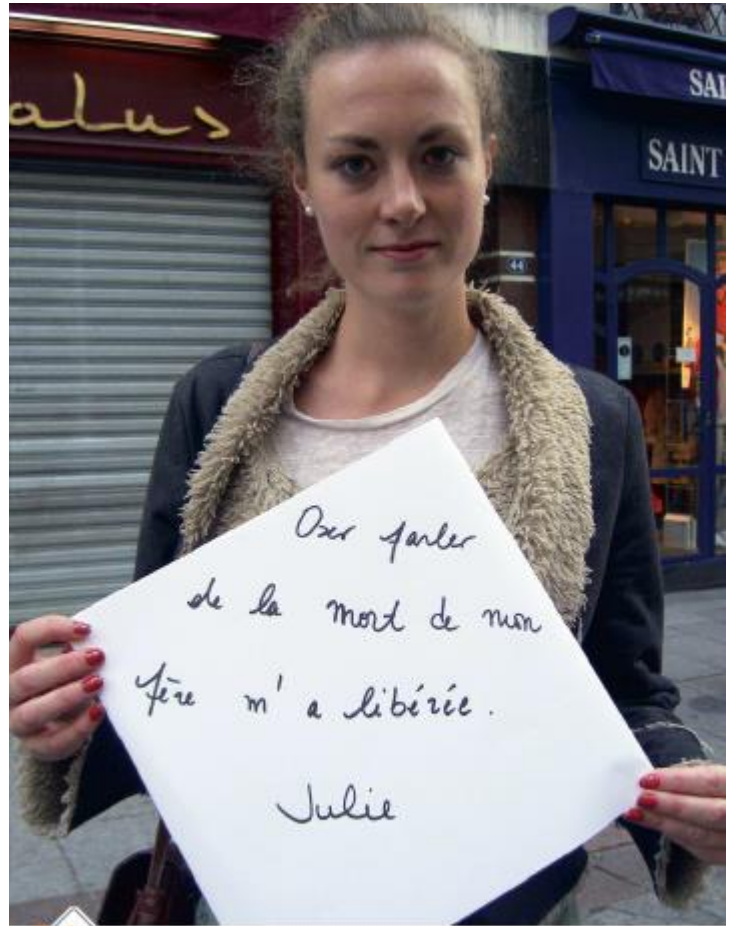 alus
SAI
SAINT
44
Oser parler
de la mort de mon
père m'a libérée.
Julie